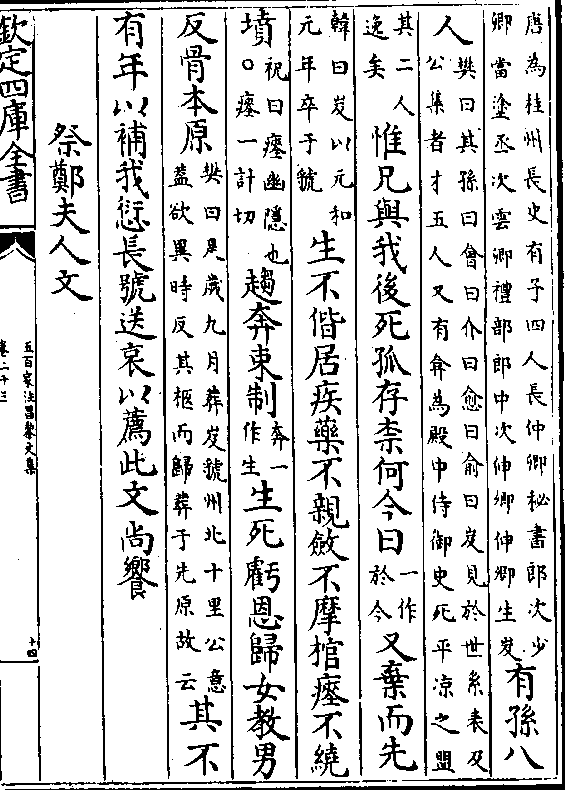 唐為桂州長史有子四人長仲卿秘書郎次少
卿當塗丞次雲卿禮部郎中次伸卿伸卿生岌
有孫八
人
樊曰其孫曰會曰介曰愈曰俞曰岌見於世系表及
公集者才五人又有弇為殿中侍御史死平凉之盟
其二人
逸矣
惟兄與我後死孤存柰何今日
一作
於今
又棄而先
韓曰岌以元和
元年卒于虢
生不偕居疾藥不親斂不摩棺瘞不繞
墳
祝曰瘞幽隱也
○瘞一計切
趨奔束制
奔一
作生
生死虧恩歸女教男
反骨本原
樊曰是歲九月葬岌虢州北十里公意
蓋欲異時反其柩而歸葬于先原故云
其不
有年以補我愆長號送哀以薦此文尚饗
祭鄭夫人文
欽定四庫全書
五百家注昌黎文集
卷二十三
十四